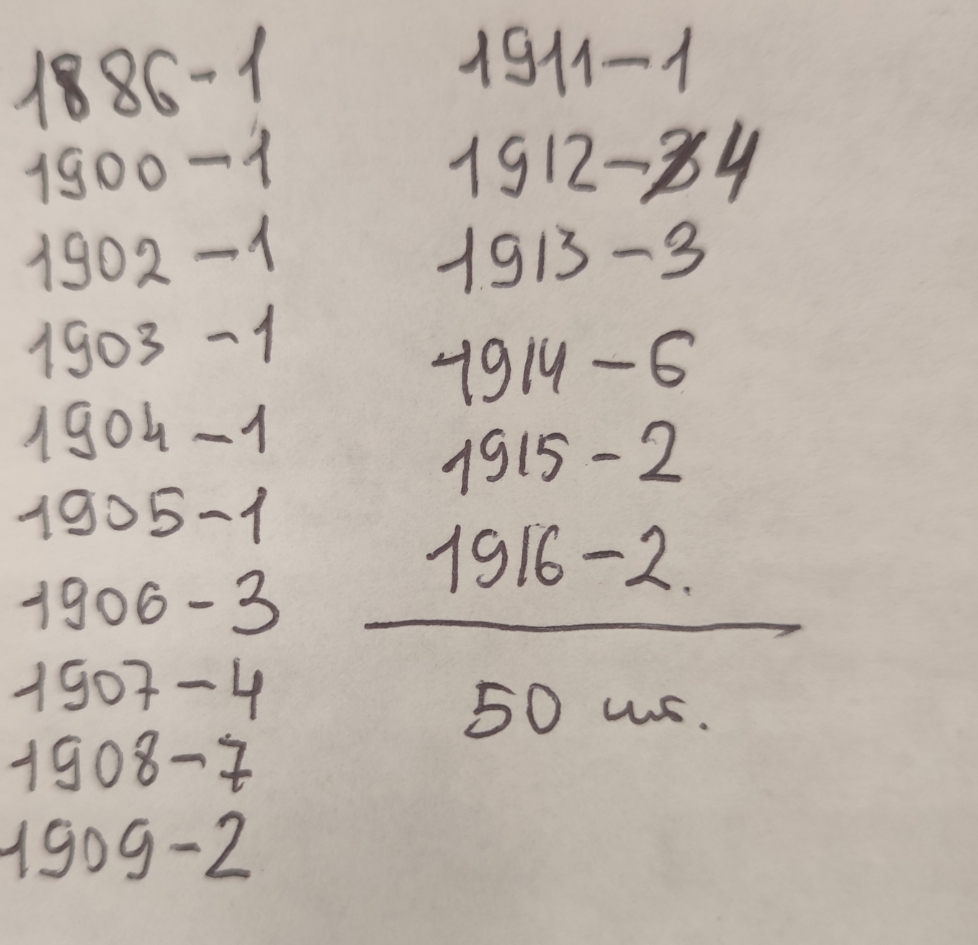 1886-1
1900-1
1902-1
1903-1
1904-1
1905-1
1906-3
1907-4
1908-7
1909-2
1911-1
1912-4
1913-3
1914-6
1915-2
1916-2.
50 шт.